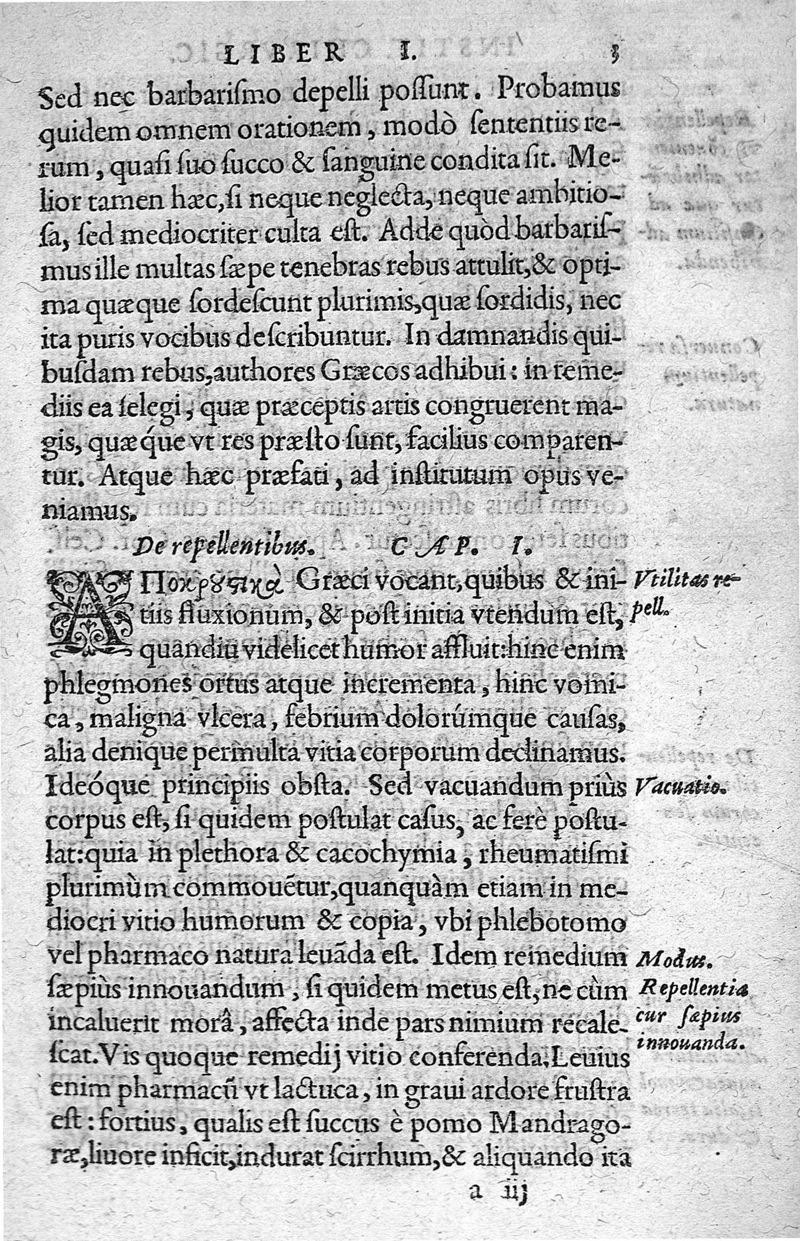 LIBER I. 3
Sed nec barbariſmo depelli poſſunt. Probamus
quidem omnem orationem, modò ſententiis re-
rum, quaſi ſuo ſucco & ſanguine condita ſit. Me-
lior tamen hæc, ſi neque neglecta, neque ambitio-
ſa, ſed mediocriter culta eſt. Adde quòd barbariſ-
mus ille multas ſæpe tenebras rebus attulit, & opti-
ma quæque ſordeſcunt plurimis, quæ ſordidis, nec
ita puris vocibus deſcribuntur. In damnandis qui-
buſdam rebus, authores Græcos adhibui: in reme-
diis ea ſelegi, quæ præceptis artis congruerent ma-
gis, quæq́ue vt res præſto ſunt, facilius comparen-
tur. Atque hæc præfati, ad inſtitutum opus ve-
niamus.
De repellentibus. CAP. I.
ΑΠοκρουςικὰ Græci vocant, quibus & ini-
tiis fluxionum, & poſt initia vtendum eſt,
quandiu videlicet humor affluit: hinc enim
phlegmones ortus atque incrementa, hinc vomi-
ca, maligna vlcera, febrium dolorúmque cauſas,
alia denique permulta vitia corporum declinamus.
Ideóque principiis obſta. Sed vacuandum priùs
corpus eſt, ſi quidem poſtulat caſus, ac ferè poſtu-
lat: quia in plethora & cacochymia, rheumatiſmi
plurimùm commouẽtur, quanquàm etiam in me-
diocri vitio humorum & copia, vbi phlebotomo
vel pharmaco natura leuãda eſt. Idem remedium
ſæpiùs innouandum, ſi quidem metus eſt, ne cùm
incaluerit morâ, affecta inde pars nimium recale-
ſcat. Vis quoque remedij vitio conferenda. Leuius
enim pharmacũ vt lactuca, in graui ardore fruſtra
eſt: fortius, qualis eſt ſuccus è pomo Mandrago-
ræ, liuore inficit, indurat ſcirrhum, & aliquando ita
a iij
Vtilitas re-
pell.
Vacuatio.
Modus.
Repellentia
cur ſæpius
innouanda.